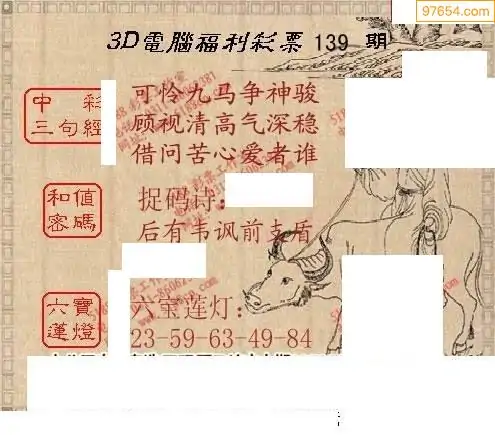 97654.com
3D電腦福利彩票 139 期
中彩
三句經
可怜九马争神骏
顾视清高气深稳
借问苦心爱者谁
和值
密碼
捉码诗:
后有韦讽前支盾
六寶
蓮燈
六宝莲灯:
23-59-63-49-84